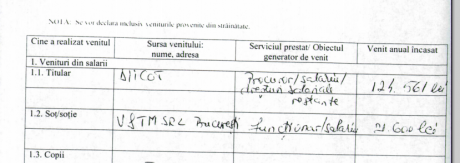 NOTĂ: Se vor declara inclusiv veniturile provenite din străinătate.
Cine a realizat venitul Sursa venitului: nume, adresa Serviciul prestat/ Obiectul generator de venit Venit anual încasat
1. Venituri din salarii
1.1. Titular DIICOT Procuror/salariu/ drepturi salariale restante 124.561 lei
1.2. Soț/soție București funcționar/salariu 21.600 lei
1.3. Copii